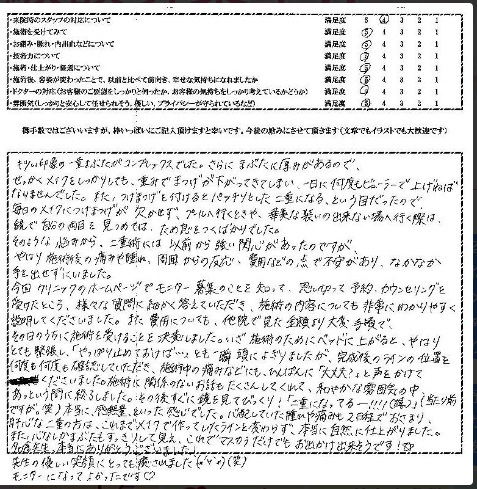 ・来院時のスタッフの対応について 満足度 5 ④ 3 2 1
・施術を受けてみて 満足度 ⑤ 4 3 2 1
・お痛み・腫れ・内出血などについて 満足度 ⑤ 4 3 2 1
・技術力について 満足度 ⑤ 4 3 2 1
・施術・仕上がり・経過について 満足度 ⑤ 4 3 2 1
・施術後、容姿が変わったことで、以前と比べて前向き、幸せな気持ちになれましたか 満足度 ⑤ 4 3 2 1
・ドクターの対応(お客様のご要望をしっかりと伺ったか、お客様の気持ちをしっかり考えているかどうか) 満足度 4 3 2 1
・雰囲気(しっかりと安心して任せられそう、優しい、プライバシーが守られているなど) 満足度 4 3 2 1
御手数ではございいますが、枠いっぱいにご記入頂けますと幸いです。今後の励みにさせて頂きます(文章でもイラストでも大歓迎です)
印象の一重まぶたがコンプレックスでした。さらにまぶたに厚みがあるので、
せっかくメイクをしっかりしても、重みでまつげが下がってきてしまい、一日に何度もビューラーで上げなければ
なりませんでした。また、つけまつげを付けるとパッチリとした二重になる、という目だったので
毎日のメイクにつけまつげが欠かせず、プールへ行くときや、華美な装いの出来ない場へ行く際は、
鏡で自分の両目を見つめては、ため息をつくばかりでした。
そのような悩みから、二重術には以前から強い関心があったのですが、
やはり施術後の痛みや腫れ、周囲からの反応、費用などの点で不安があり、なかなか
手を出せずにいました。
今回クリニックのホームページでモニター募集のことを知って、思い切って予約、カウンセリングを
受けたところ、様々な質問に細かく答えていただき、施術の内容についても非常にわかりやすく
説明してくださいました。また費用についても、他院で見た金額より大変お得で、
その日のうちに施術を受けることを決意しました。いざ施術のためにベッドに上がると、やはり
とても緊張し、「やっぱり止めておけば…」とも一瞬頭によぎりましたが、完成後のラインの位置を
何度も何度も確認していただき、施術中の痛みなどにも、ひんぱんに「大丈夫?」と声をかけて
くださいました。施術に関係のないお話もたくさんしてくれて、和やかな雰囲気の中
あっという間に終了しました。その後すぐに鏡を見てびっくり!「二重になってるー!!!!(驚)」
ですが。(笑)本当に感無量、といった感じでした。心配していた腫れや痛みも2日程でおさまり、
二重の方は、これまでメイクで作っていたラインと変わらず、本当に自然に仕上がりました。
また、心なしかまぶたもすっきりして見え、これでマスカラだけでもお出かけ出来そうです!
先生、本当にありがとうございました。
先生の優しい笑顔にとっても癒されました(^^)(笑)
モニターになってよかったです♡